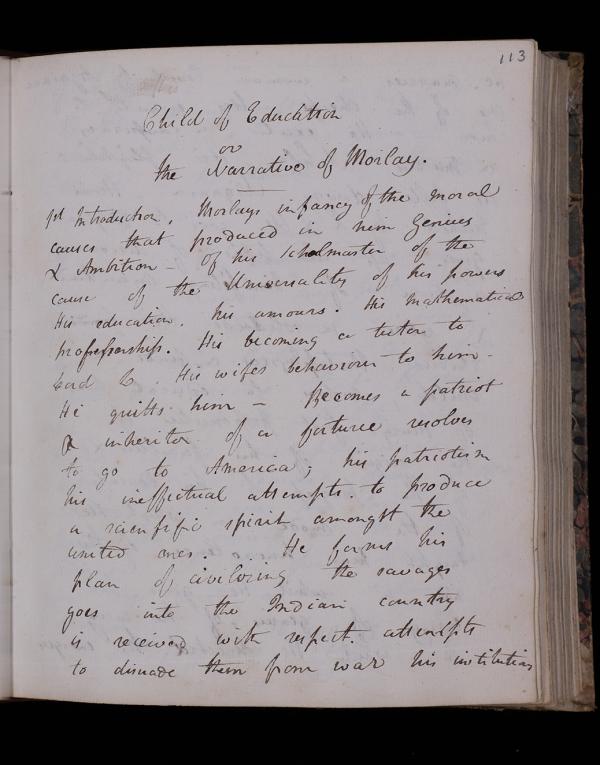 113
Child of Education
or
The Narrative of Morlay.
1st Introduction. Morlays infancy of the moral
causes that produced in him Genius
& Ambition - of his Schoolmaster of the
cause of the Universality of his powers
His education, his amours. His mathematical
professorship. His becoming a tutor to
Lord C. His wifes behaviour to him -
He quitts him - Becomes a patriot
& inheritor of a fortune resolves
to go to America, his patriotism
his ineffectual attempts to produce
a scientific spirit amongst the
united ones. He forms his
plan of civilising the savages
goes into the Indian country
is received with respect. attempts
to disuade them from war his institutions